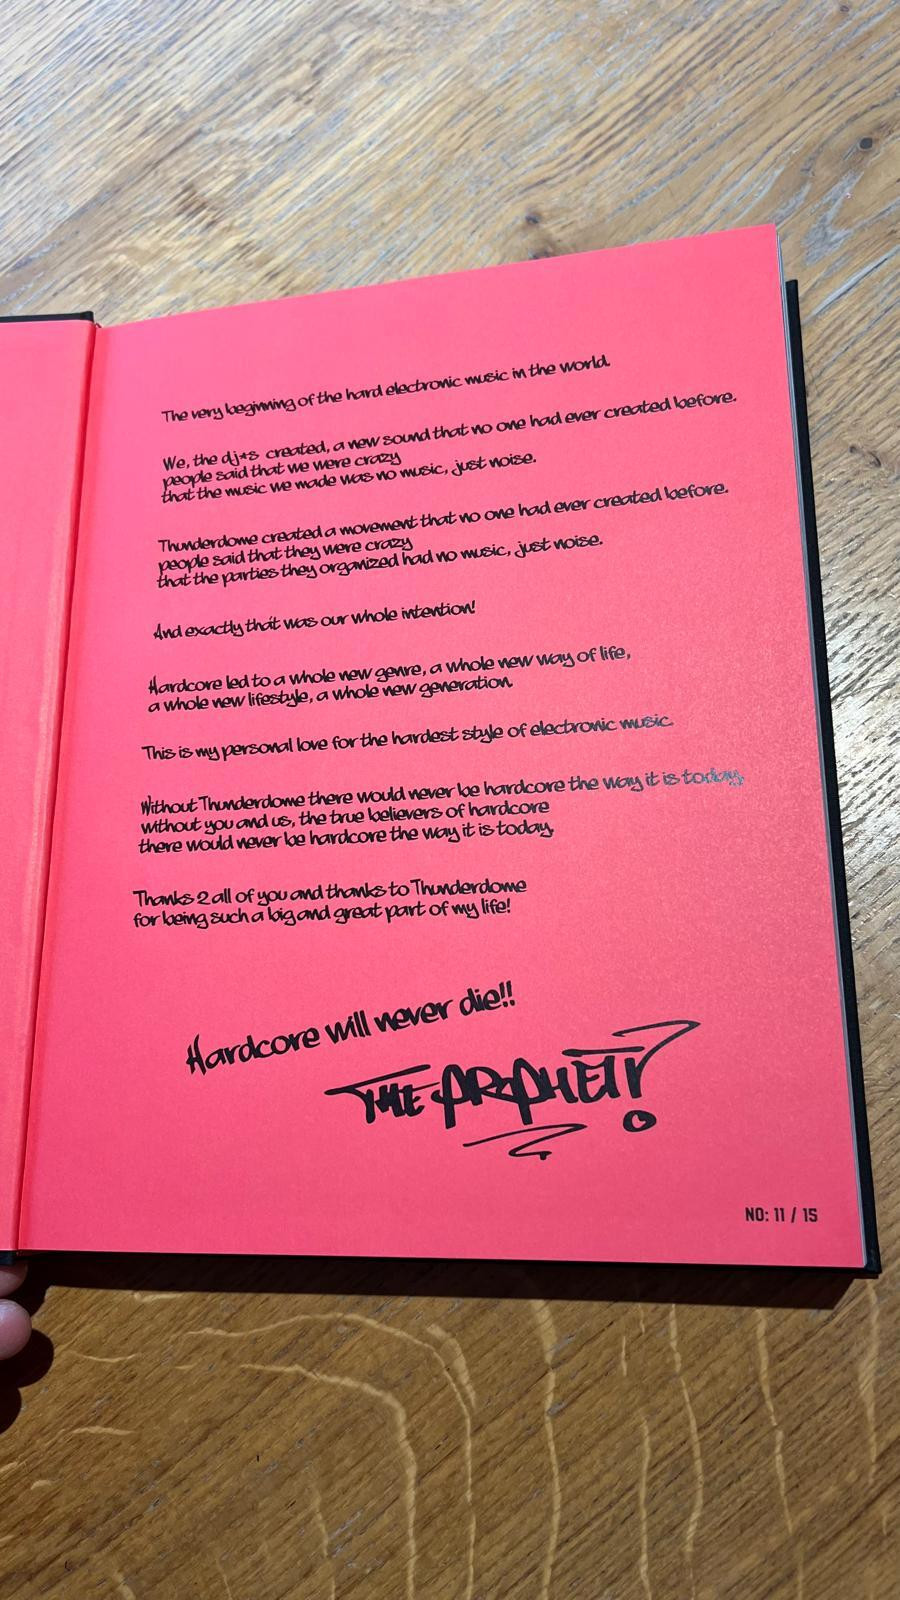 The very beginning of the hard electronic music in the world.
We, the dj*s created, a new sound that no one had ever created before.
people said that we were crazy
that the music we made was no music, just noise.
Thunderdome created a movement that no one had ever created before.
people said that they were crazy
that the parties they organized had no music, just noise.
And exactly that was our whole intention!
Hardcore led to a whole new genre, a whole new way of life,
a whole new lifestyle, a whole new generation.
This is my personal love for the hardest style of electronic music.
Without Thunderdome there would never be hardcore the way it is today.
without you and us, the true believers of hardcore
there would never be hardcore the way it is today.
Thanks 2 all of you and thanks to Thunderdome
for being such a big and great part of my life!
Hardcore will never die!!
THE PROPHET
NO: 11 / 15